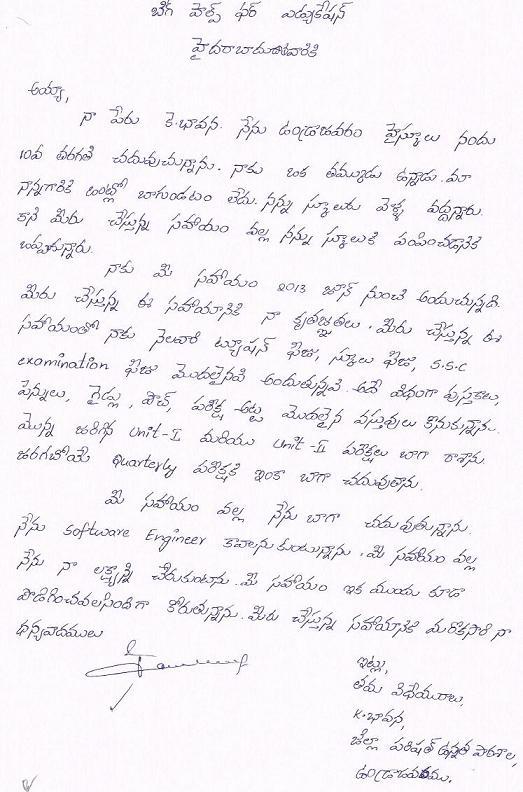 బిగ్ హెల్ప్ ఫర్ ఎడ్యుకేషన్
హైదరాబాదు వారికి
అయ్యా,
నా పేరు కె.భావన. నేను ఉండ్రాజవరం హైస్కూలు నందు
10వ తరగతి చదువుచున్నాను. నాకు ఒక తమ్ముడు ఉన్నాడు. మా
నాన్నగారికి ఒంట్లో బాగుండటం లేదు. నన్ను స్కూలుకు వెళ్ళ వద్దన్నారు.
కాని మీరు చేస్తున్న సహాయం వల్ల నన్ను స్కూలుకి పంపించడానికి
ఒప్పుకున్నారు.
నాకు మీ సహాయం 2013 జూన్ నుంచి అందుచున్నది.
మీరు చేస్తున్న ఈ సహాయానికి నా కృతజ్ఞతలు. మీరు చేస్తున్న ఈ
సహాయంతో నాకు నెలవారీ ట్యూషన్ ఫీజు, స్కూలు ఫీజు, S.S.C
examination ఫీజు మొదలైనవి అందుతున్నవి. అదే విధంగా పుస్తకాలు,
పెన్నులు, గైడ్లు, వాచ్, పరీక్ష అట్ట మొదలైన వస్తువులు కొనుకున్నాను.
మొన్న జరిగిన unit-I మరియు unit-II పరీక్షలు బాగా రాశాను.
జరగబోయే quarterly పరీక్షకి ఇంకా బాగా చదువుతాను.
మీ సహాయం వల్ల నేను బాగా చదువుతున్నాను.
నేను Software Engineer కావాలనుకుంటున్నాను. మీ సహాయం వల్ల
నేను నా లక్ష్యాన్ని చేరుకుంటాను. మీ సహాయం ఇక ముందు కూడా
పొడిగించవలసిందిగా కోరుతున్నాను. మీరు చేస్తున్న సహాయానికి మరొకసారి నా
ధన్యవాదములు
ఇట్లు,
తమ విధేయురాలు,
K.భావన,
జిల్లా పరిషత్ ఉన్నత పాఠశాల,
ఉండ్రాజవరము.